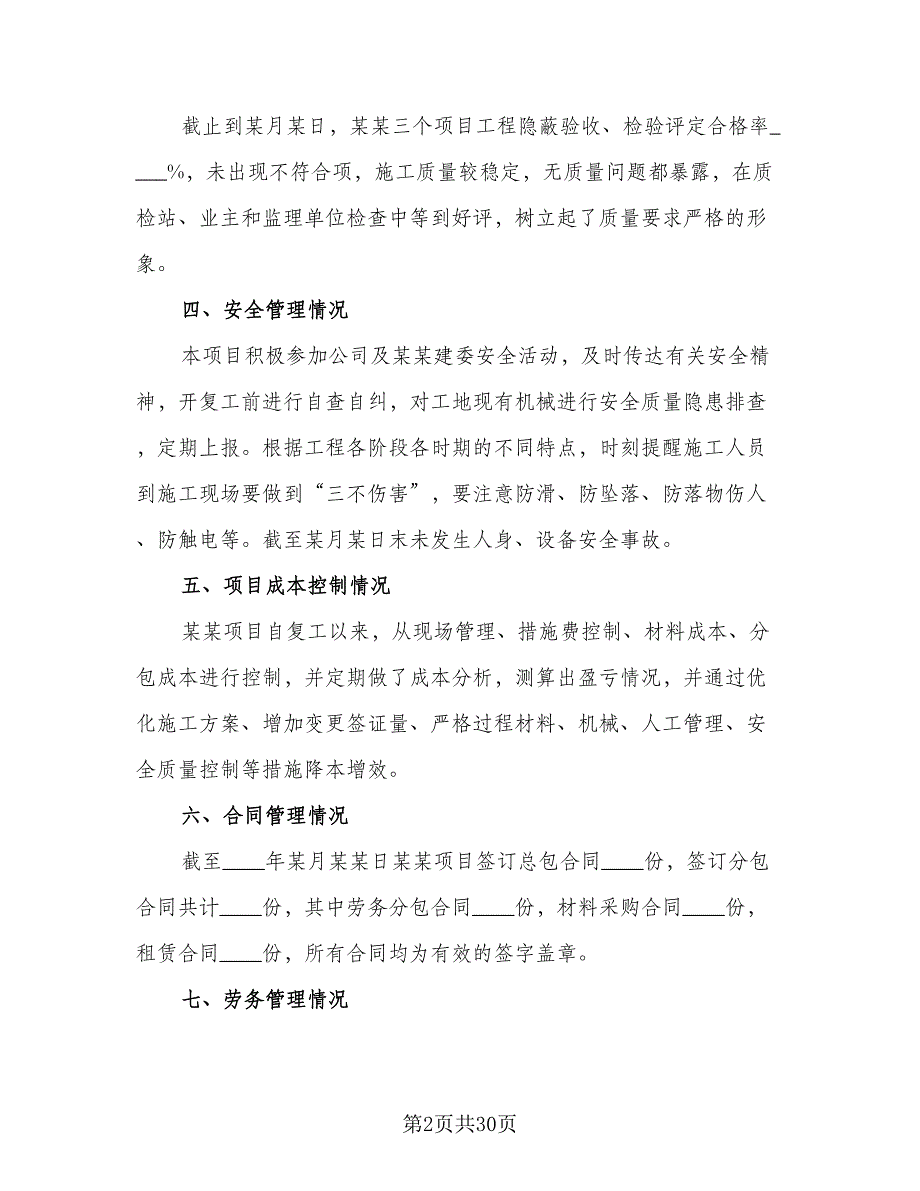 截止到某月某日，某某三个项目工程隐蔽验收、检验评定合格率_
___%，未出现不符合项，施工质量较稳定，无质量问题都暴露，在质
检站、业主和监理单位检查中等到好评，树立起了质量要求严格的形
象。
四、安全管理情况
本项目积极参加公司及某某建委安全活动，及时传达有关安全精
神，开复工前进行自查自纠，对工地现有机械进行安全质量隐患排查
，定期上报。根据工程各阶段各时期的不同特点，时刻提醒施工人员
到施工现场要做到“三不伤害”，要注意防滑、防坠落、防落物伤人
、防触电等。截至某月某日末未发生人身、设备安全事故。
五、项目成本控制情况
某某项目自复工以来，从现场管理、措施费控制、材料成本、分
包成本进行控制，并定期做了成本分析，测算出盈亏情况，并通过优
化施工方案、增加变更签证量、严格过程材料、机械、人工管理、安
全质量控制等措施降本增效。
六、合同管理情况
截至____年某月某某日某某项目签订总包合同____份，签订分包
合同共计____份，其中劳务分包合同____份，材料采购合同____份，
租赁合同____份，所有合同均为有效的签字盖章。
七、劳务管理情况
第2页共30页